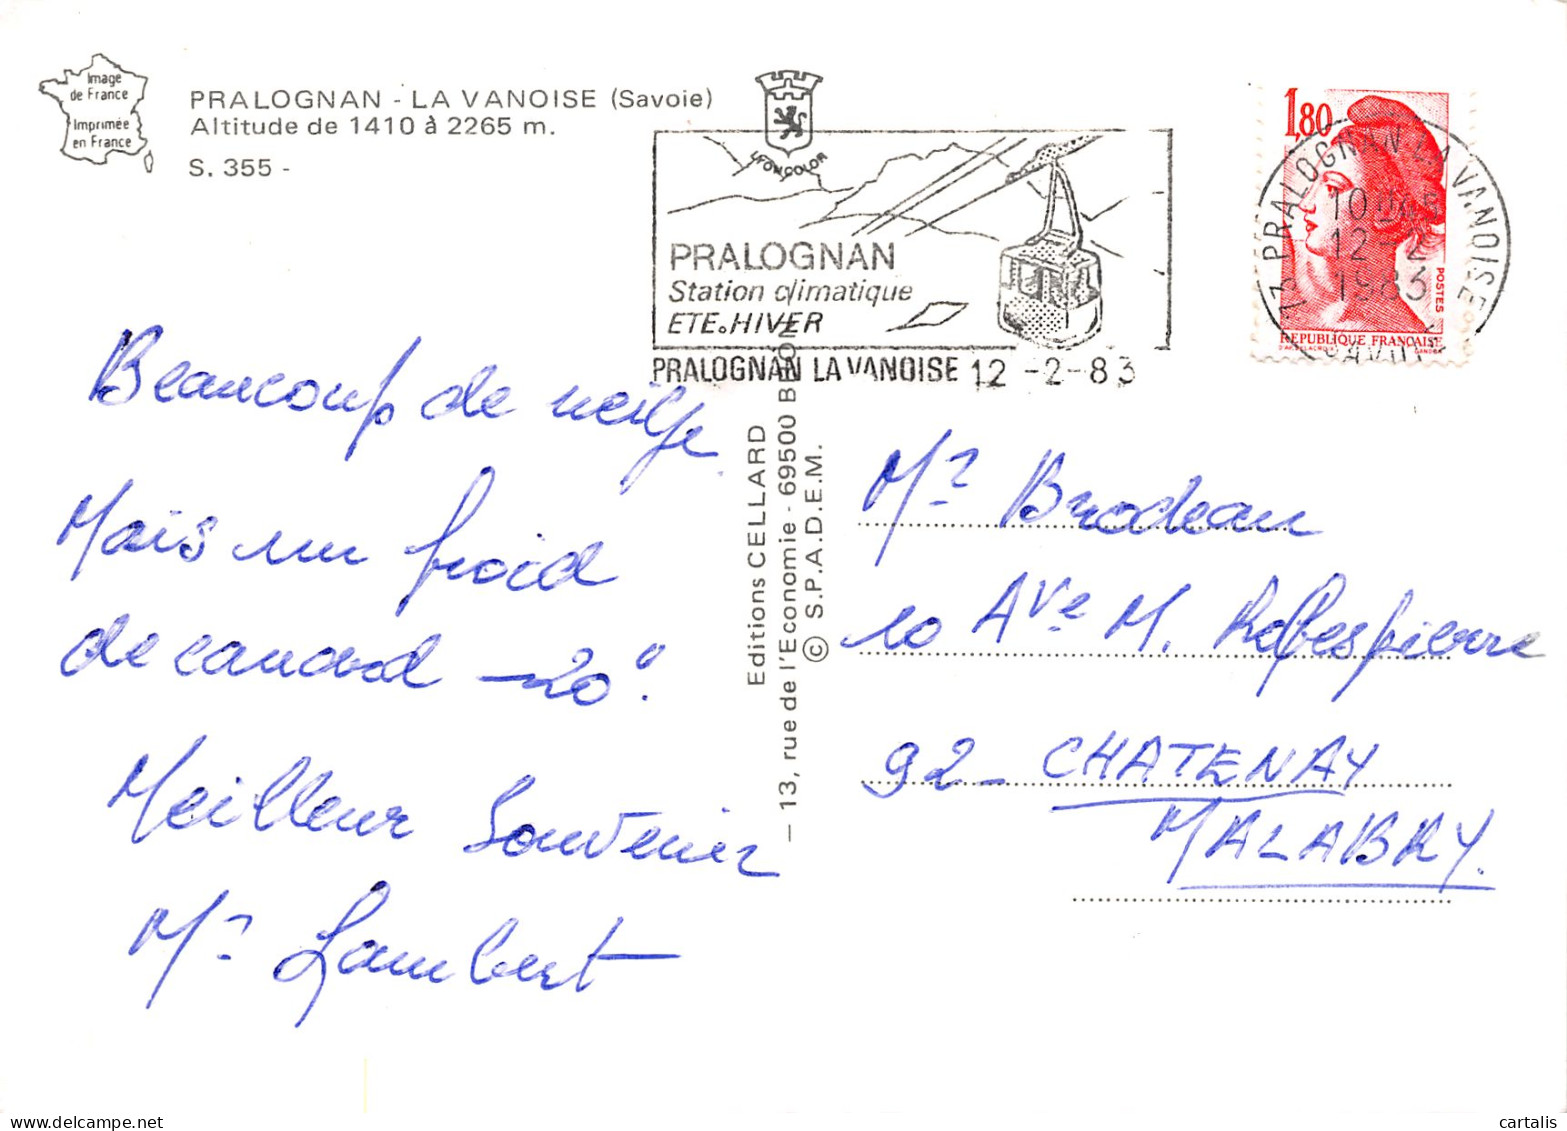 Image
de France
Imprimée
en France
PRALOGNAN - LA VANOISE (Savoie)
Altitude de 1410 à 2265 m.
S. 355 -
LYONCOLOR
PRALOGNAN
Station climatique
ETE.HIVER
PRALOGNAN LA VANOISE 12 -2-83
1,80
POSTES
REPUBLIQUE FRANÇAISE
73 PRALOGNAN LA VANOISE
12-2
1983
SAVOIE
Beaucoup de neige
Mais un froid
de canard -20°.
Meilleur Souvenir
Mr Lambert
Editions CELLARD
— 13, rue de l'Economie - 69500 BRON
© S.P.A.D.E.M.
Mr Brodeau
10 Ave M. Robespierre
92 - CHATENAY
MALABRY.
cartalis